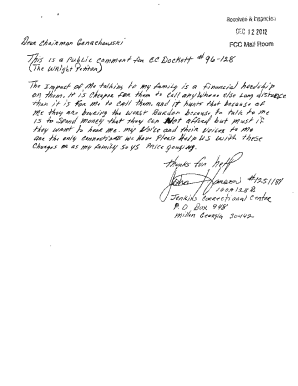 Received & Inspected
DEC 12 2012
FCC Mail Room
Dear Chairman Genachowski
This is a Public Comment for BC Dockett #96-128
(The Wright Petition)
The impact of me talking to my family is a financial hardship
on them. It is cheaper for them to call anywhere else long distance
than it is for me to call them. and it hurts that because of
me they are bearing the worst Burden because to talk to me
is to spend money that they can not afford but must if
they want to hear me. my voice and their voices to me
are the only connections we have Please help us with these
Charges or as my family says Price gouging.
thanks for help
#1251181
Jenkins Correctional Center
P.O. Box 998
millen Georgia 30442